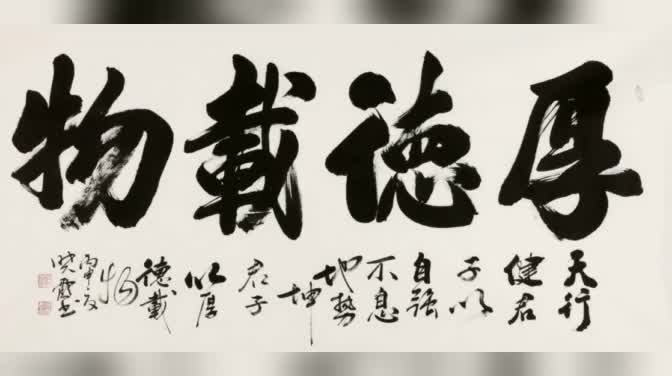 厚德載物
天行
健君
子以
自强
不息
地勢
坤
君子
以厚
德載
物
丙申